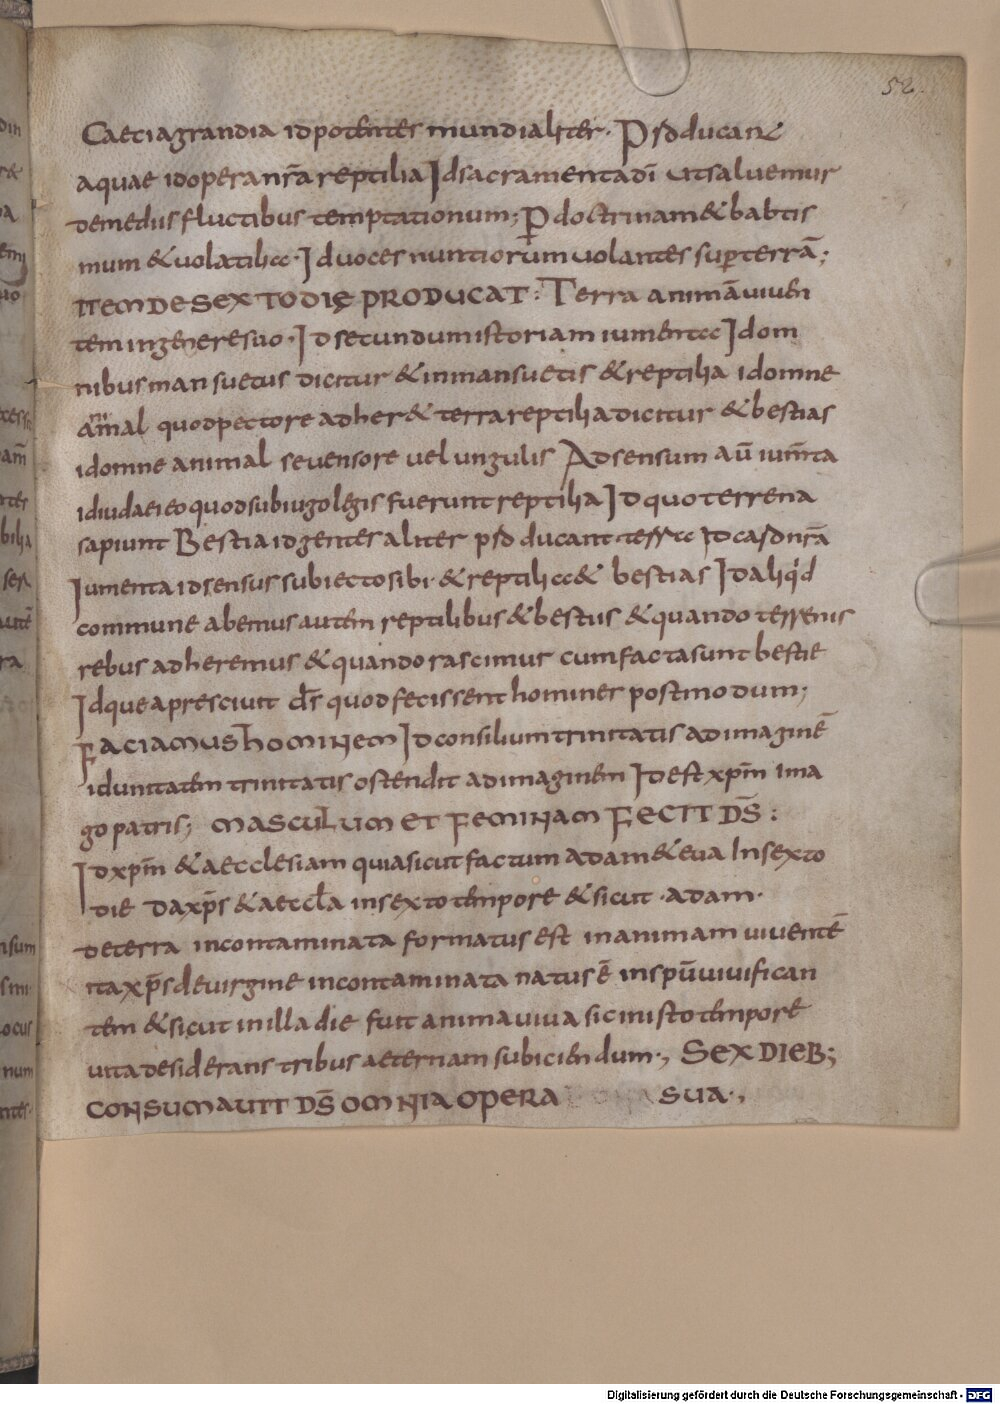 52.
Caetiagrandia idpotentes mundialiter. Psoducan&
aquae idoperanr̄a reptilia Idsacramentadi ̄ utsaluemur
demediis fluctibus temptationum; P doctrinam & babtis
mum & uolatilia. Id uoces nuntiorum uolantes sup terrā;
ITEM DE SEXTO DIĘ PRODUCAT: Terra animā uiuen
tem ingenere suo. Id secundum istoriam iumenta Idom
nibus mansuetus dicitur & inmansuetis & reptilia idomne
animal quodpectore adher& terra reptilia dicitur & bestias
idomne animal seuensore uel ungulis Adsensum aū ium̄ta
idiudaei eo quodsubiugolegis fuerunt reptilia Id quo terrena
sapiunt Bestia idgentes aliter psoducant terra Id casonr̄a
Iumenta idsensus subiectosibi. & reptilia & bestias Id aliq'd
commune abemus autem reptilibus & bestiis & quando terrenis
rebus adheremus & quando rascimur cum factasunt bestie
Idque apresciuit ds quod fecissent homines postmodum;
FACIAMUS HOMINEM Id consilium trinitatis adimaginē
idunitatem trinitatis ostendit adimaginem Id est xpm̄ ima
go patris; MASCULUM ET FEMINAM FECIT DS̄:
Idxpm̄ & aecclesiam quiasicut factum adam & eua Insexto
die Daxp̄s & aeccla insexto tempore & sicut .adam.
deterra incontaminata formatus est inanimam uiuentē
itaxp̄s deuirgine incontaminata natus ē inspū uiuifican
tem & sicut inilla die fuit anima uiua sic inisto tempore
uita desiderans tribus aeternam subiciendum., SEX DIEB;
CONSUMAUIT DS̄ OMNIA OPERA SUA.,
Digitalisierung gefördert durch die Deutsche Forschungsgemeinschaft - DFG